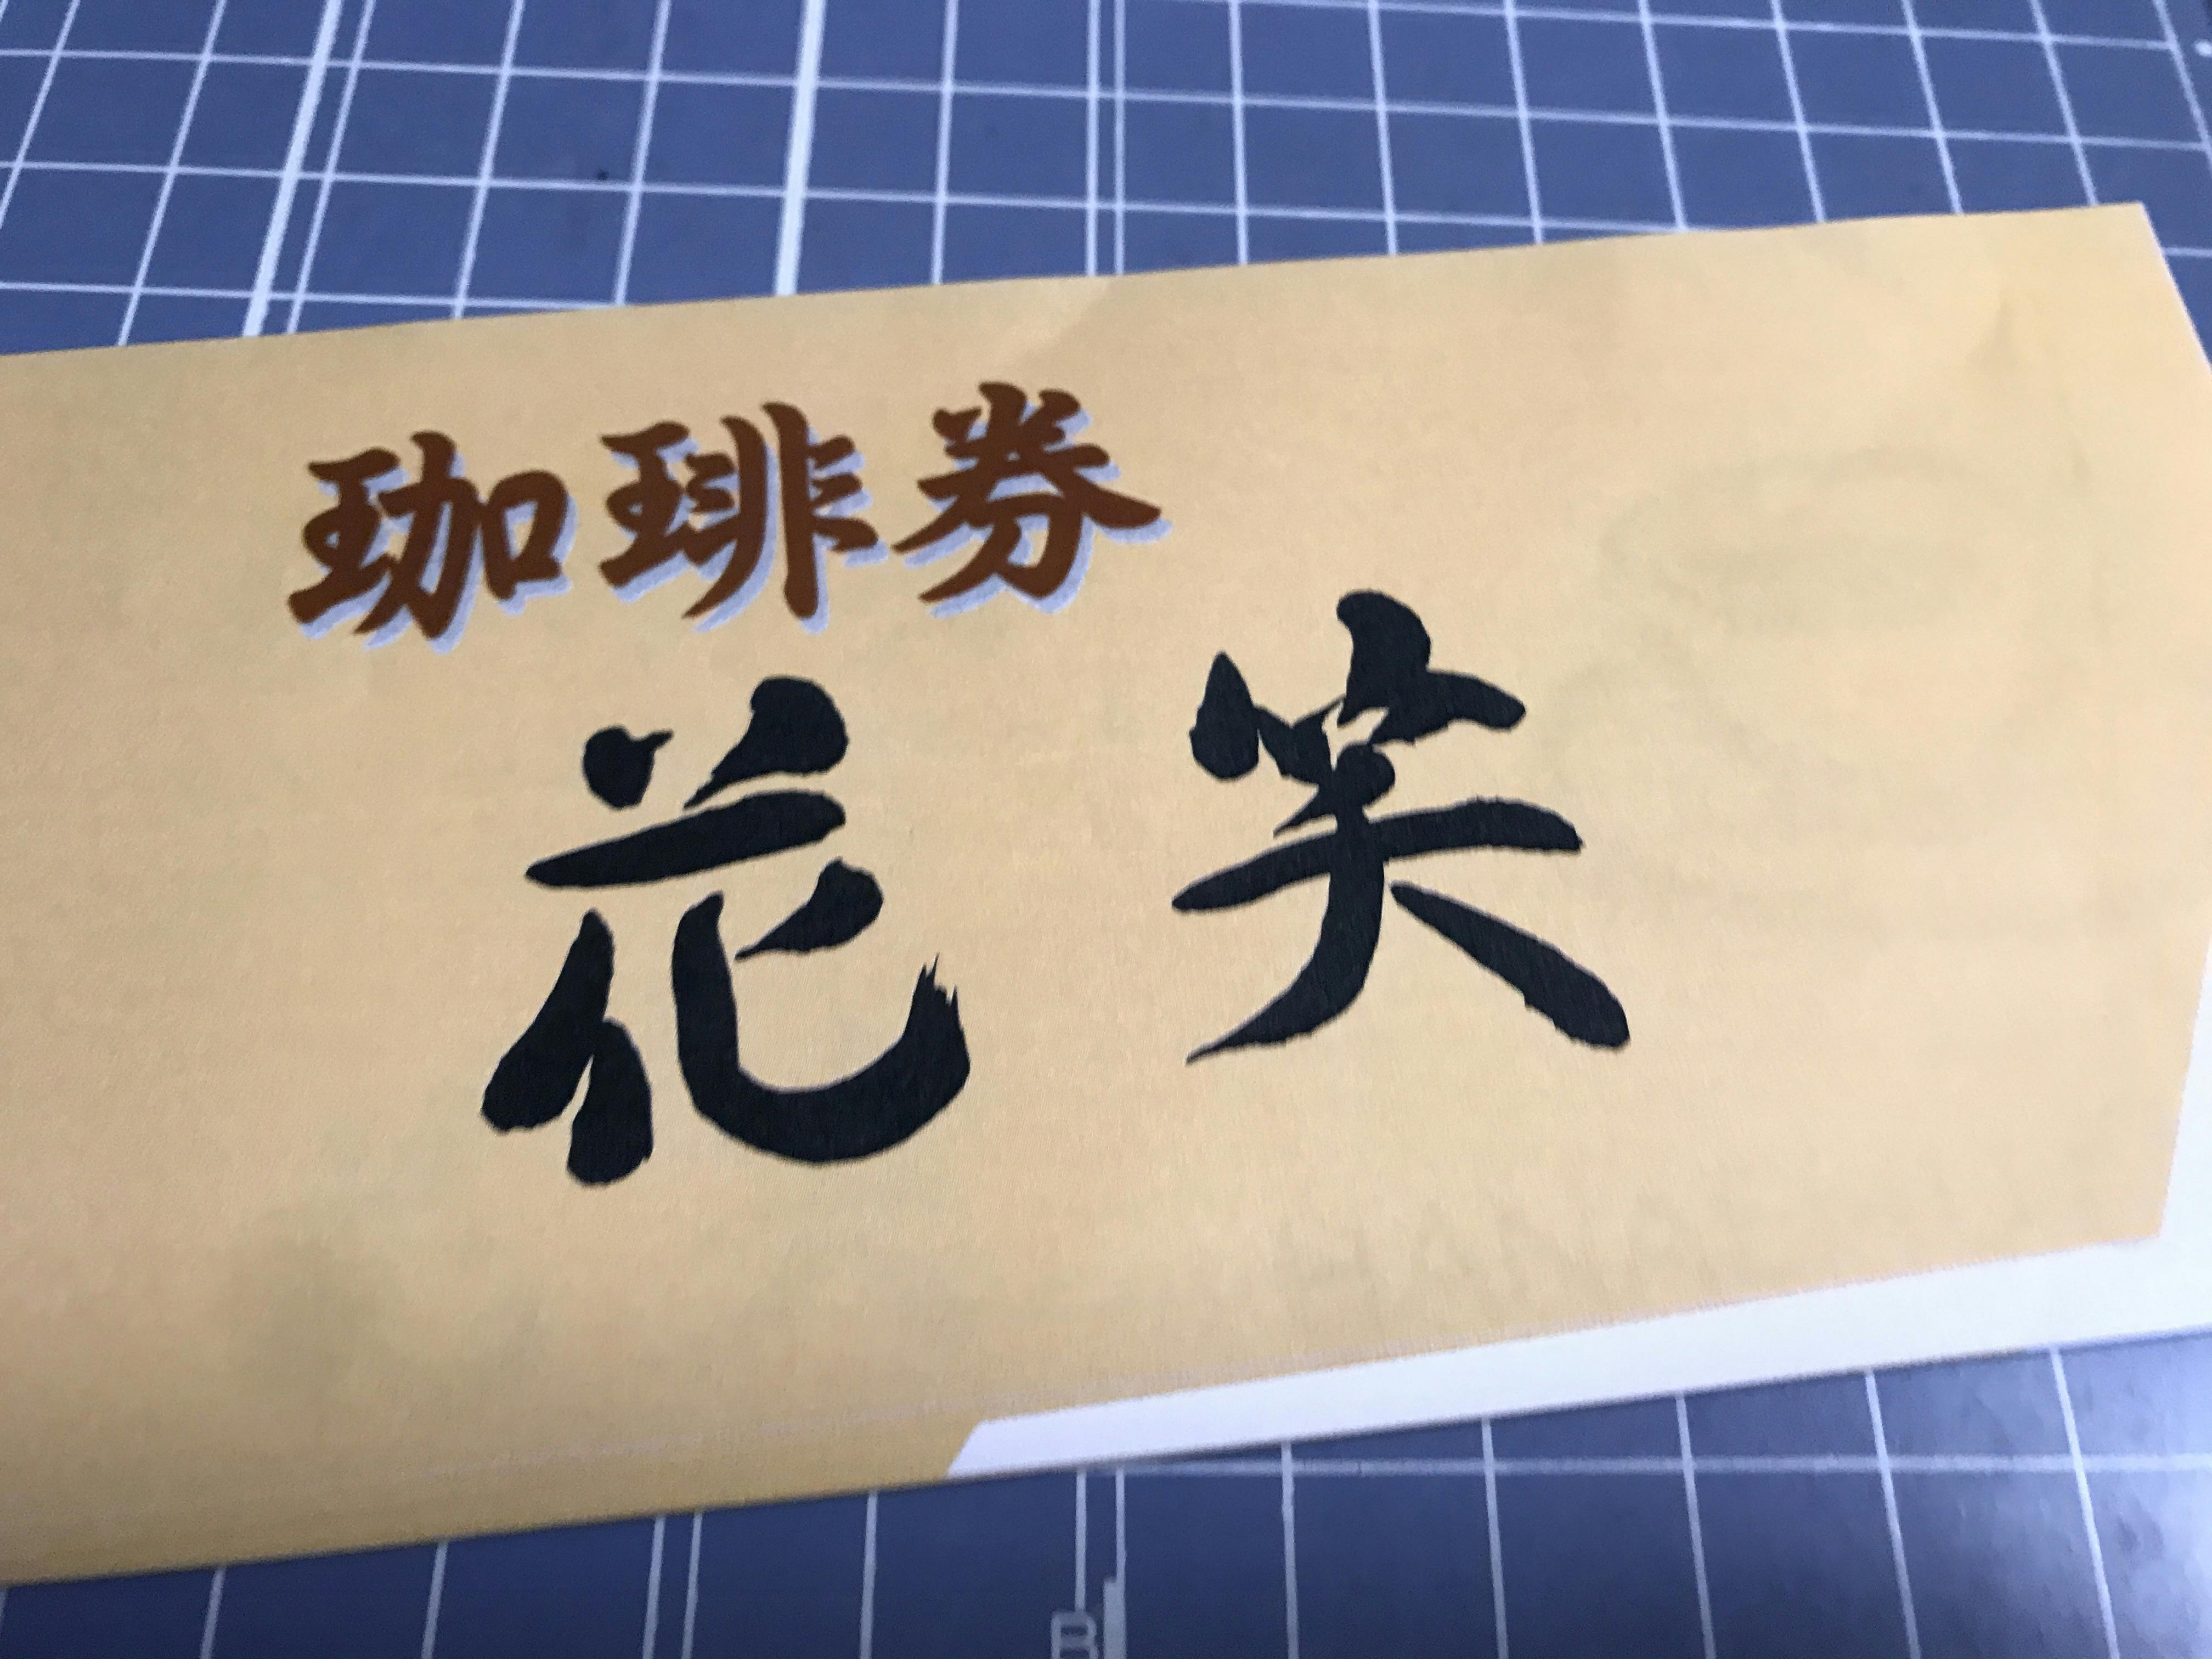 珈琲券
花笑
B